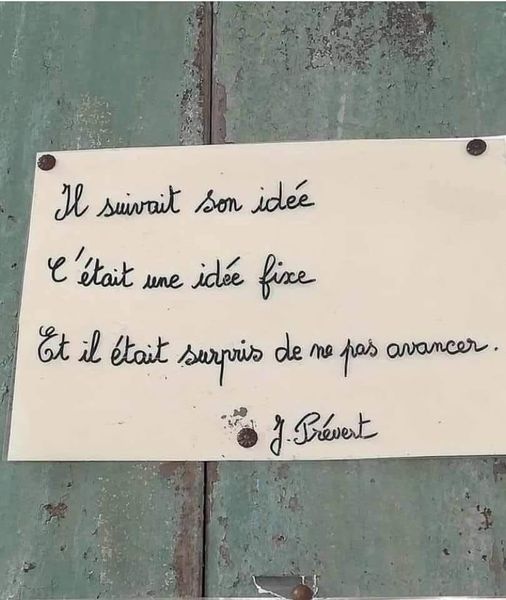 Il suivait son idée
C'était une idée fixe
Et il était surpris de ne pas avancer.
J. Prévert